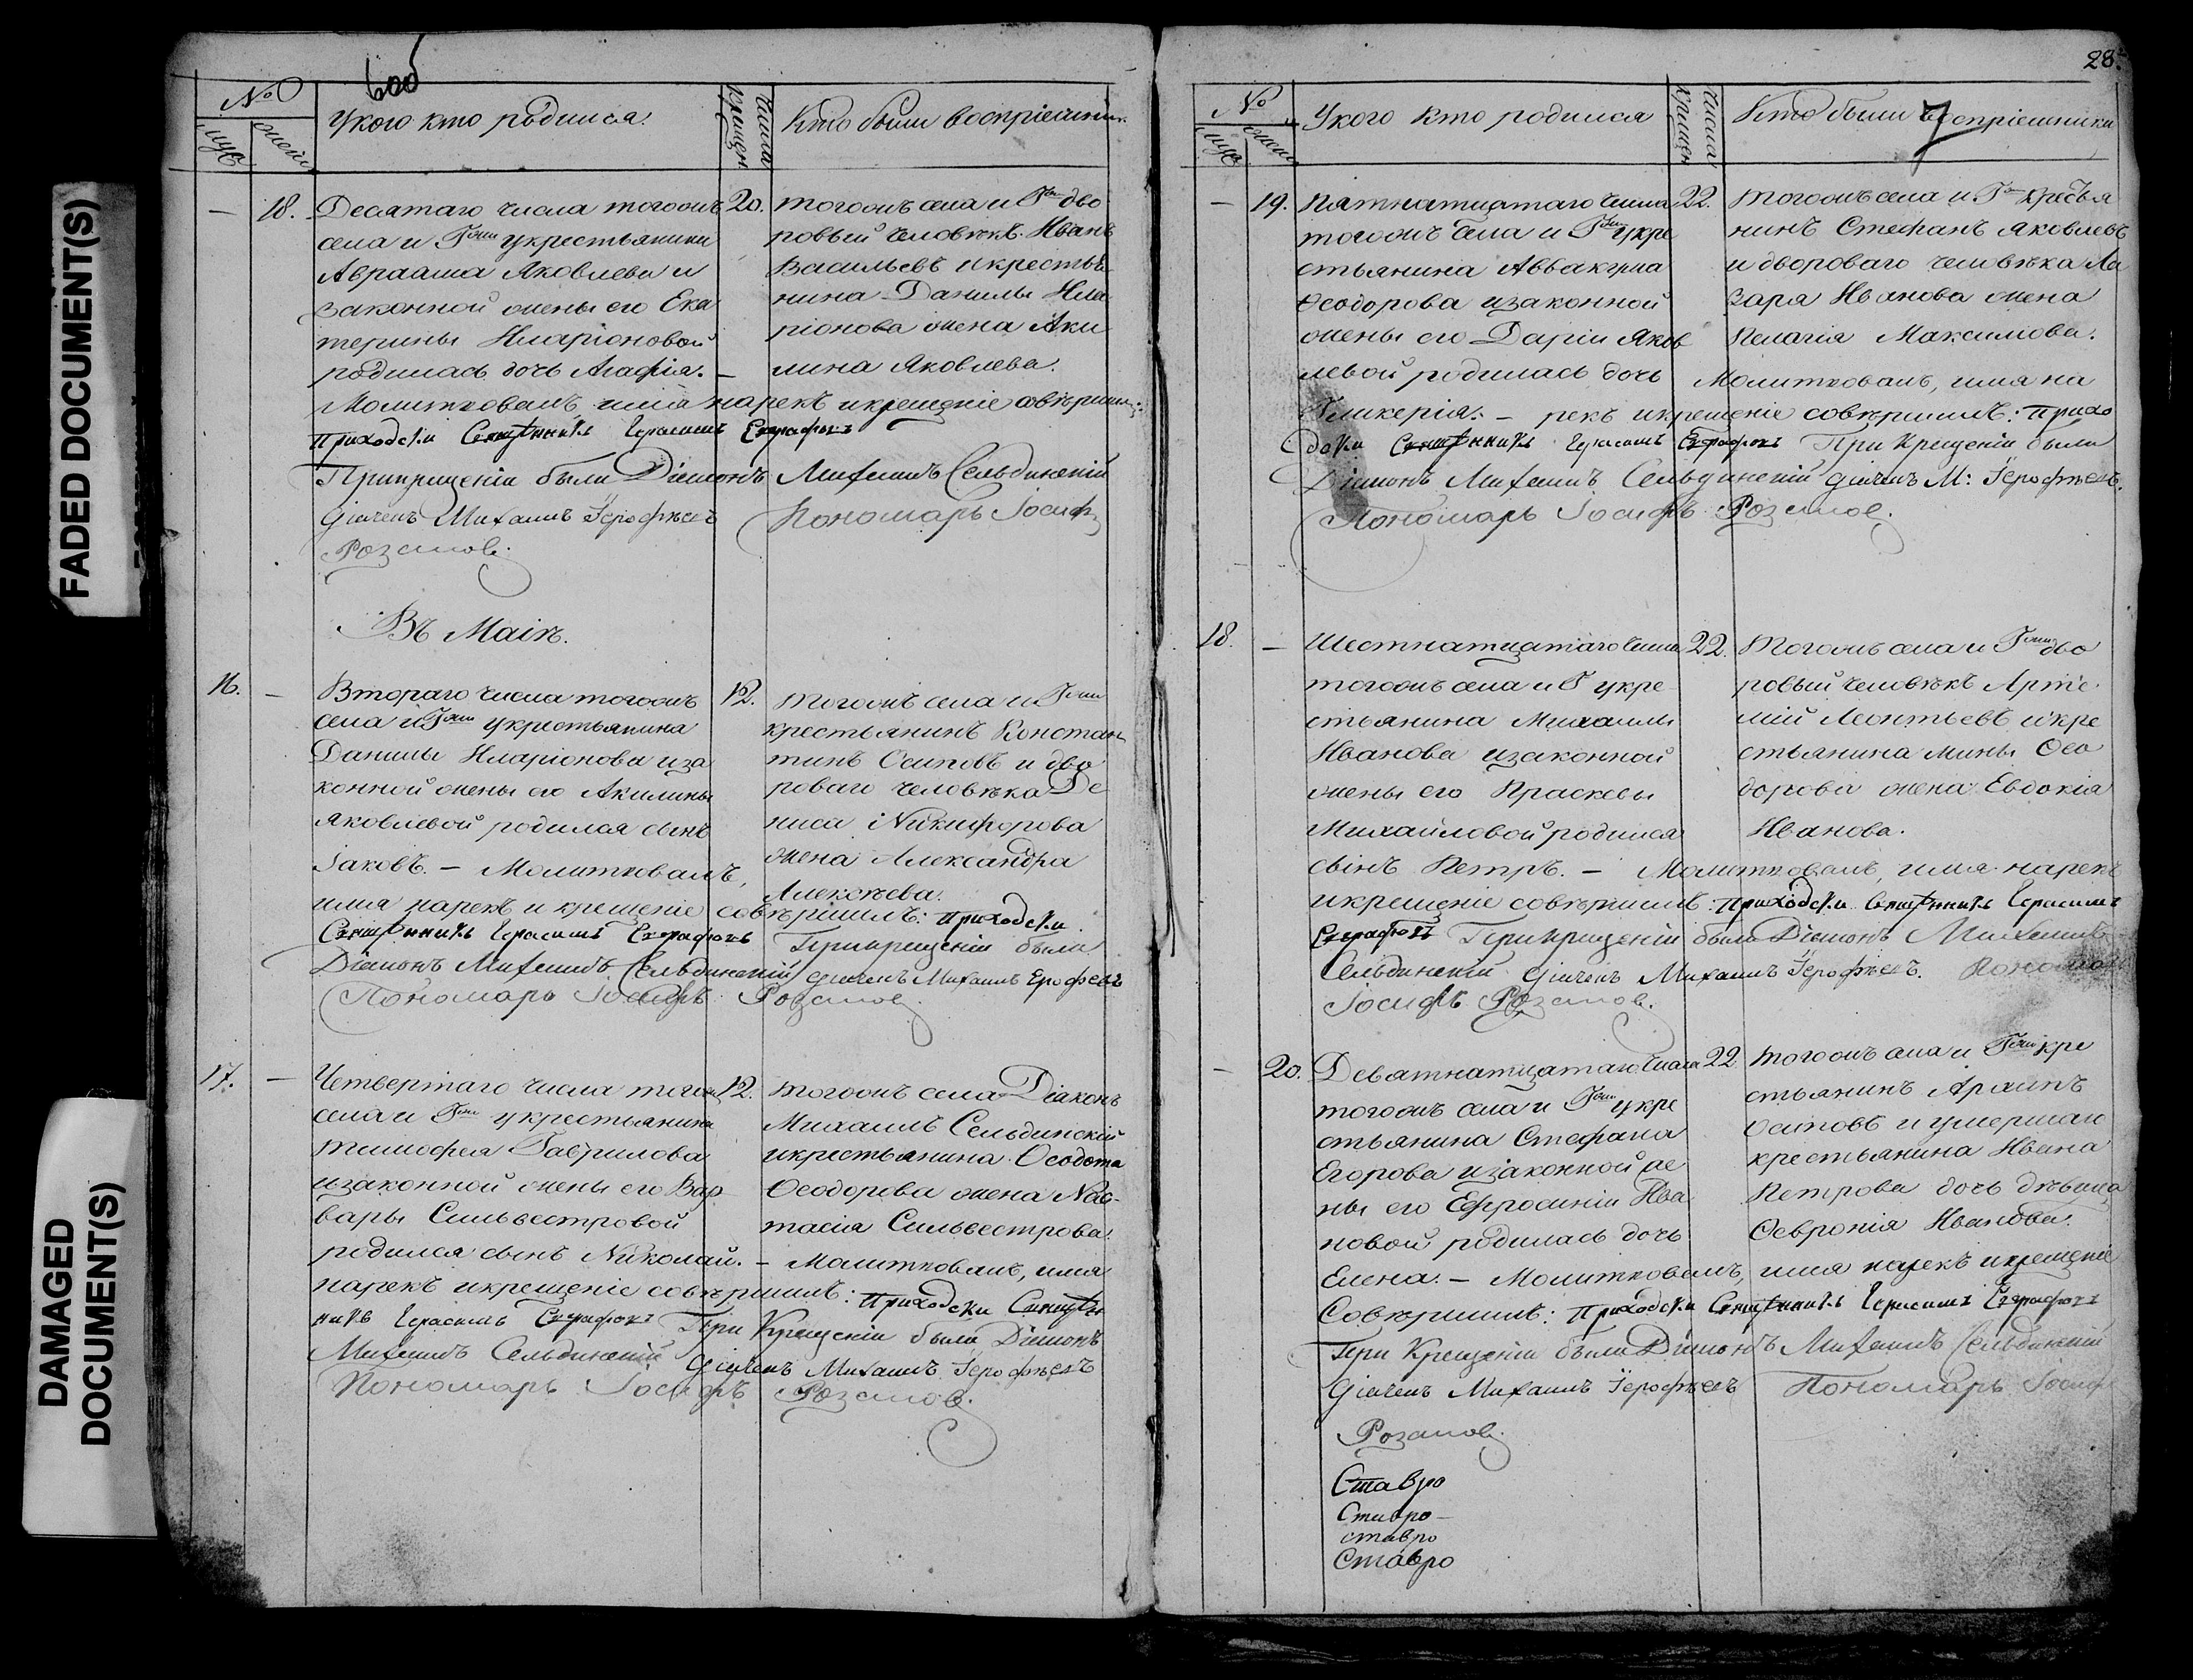 FADED DOCUMENT(S)
DAMAGED
DOCUMENT(S)
№
муж
женс
У кого кто родился.
Числа
крещен
Кто были воспріемники
— 18. Десятаго числа тогожъ
села и Г укрестьянина
Авраама Яковлева и
законной жены его Ека
терины Иларіоновой
родилась дочь Агафія. —
20. тогожъ села и Г дво
ровый человѣкъ Иванъ
Васильевъ икрестья
нина Данилы Ила
ріонова жена Аки
лина Яковлева.
Молитвовалъ, имя нарекъ икрещеніе совѣршилъ:
Приходски Герасимъ
Прикрещеніи были Діаконъ Михаилъ Сельдинскій
діячекъ Михаилъ Ерофѣевъ Пономарь Іосифъ
Розановъ.
Въ Маіѣ.
16. — Втораго числа тогожъ
села и Г укрестьянина
Данилы Иларіонова иза
конной жены его Акилины
Яковлевой родился сынъ
Іаковъ. — Молитвовалъ,
12. тогожъ села и Г
крестьянинъ Констан
тинъ Осиповъ и дво
роваго человѣка Де
ниса Никифорова
жена Александра
Алексѣева.
имя нарекъ и крещеніе совѣршилъ: приходски
Герасимъ Прикрещеніи были
Діаконъ Михаилъ Сельдинскій діячекъ Михаилъ Ерофѣевъ
Пономарь Іосифъ Розановъ.
17. — Четвертаго числа тогожъ
села и Г укрестьянина
Тимофея Гаврилова
изаконной жены его Вар
вары Сильвестровой
родился сынъ Николай. —
12. тогожъ села Діаконъ
Михаилъ Сельдинскій
икрестьянина Ѳеодота
Ѳеодорова жена Нас-
тасія Сильвестрова.
Молитвовалъ, имя
нарекъ икрещеніе совѣршилъ: Приходски Священ
никъ Герасимъ При Крещеніи были Діаконъ
Михаилъ Сельдинскій діячекъ Михаилъ Ерофѣевъ
Пономарь Іосифъ Розановъ.
28.
№
муж
женс
У кого кто родился
Числа
крещен
Кто были воспріемники
7
— 19. Пятнатцатаго числа
тогожъ села и Г укре
стьянина Аввакума
Ѳеодорова изаконной
жены его Даріи Яков
левой родилась дочь
Гликерія. —
22. тогожъ села и Г крестья
нинъ Стефанъ Яковлевъ
и двороваго человѣка Ла
заря Иванова жена
Пелагія Максимова.
Молитвовалъ, имя на
рекъ икрещеніе совѣршилъ: прихо
дски Герасимъ При Крещеніи были
Діаконъ Михаилъ Сельдинскій діячекъ М: Ерофѣевъ.
Пономарь Іосифъ Розановъ.
18. — Шестнатцатаго числа
тогожъ села и Г укре
стьянина Михаилы
Иванова изаконной
жены его Праскевы
Михайловой родился
сынъ Петръ. —
22. тогожъ села и Г дво
ровый человѣкъ Арте
мій Леонтьевъ икре
стьянина Мины Ѳео
дорова жена Евдокія
Иванова.
Молитвовалъ, имя нарекъ
икрещеніе совѣршилъ: приходски Герасимъ
Прикрещеніи были Діаконъ Михаилъ
Сельдинскій діячекъ Михаилъ Ерофѣевъ. Пономарь
Іосифъ Розановъ.
— 20. Девятнатцатаго числа
тогожъ села и Г укре
стьянина Стефана
Егорова изаконной же
ны его Ефросиніи Ива
новой родилась дочь
Елена. —
22 тогожъ села и Г кре
стьянинъ Архипъ
Осиповъ и умершаго
крестьянина Ивана
Петрова дочь дѣвица
Ѳевронія Иванова.
Молитвовалъ, имя нарекъ икрещеніе
Совѣршилъ: Приходски Герасимъ
При Крещеніи были Діаконъ Михаилъ Сельдинскій
діячекъ Михаилъ Ерофѣевъ Пономарь Іосифъ
Розановъ.
Ставро
Ставро —
ставро
Ставро